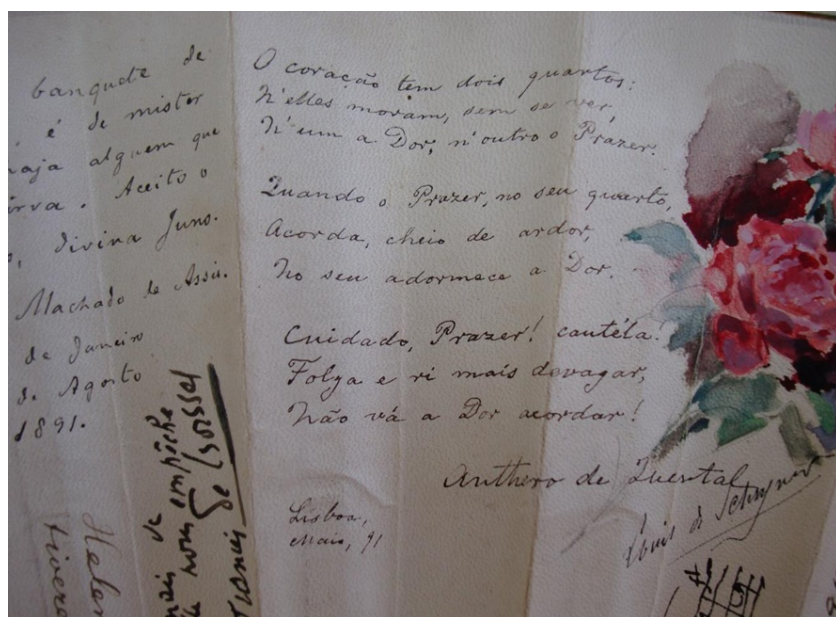 banquete de
é de mister
haja alguem que
sirva. Aceito o
divina Juno.
Machado de Assis.
de Janeiro
de Agosto
1891.
O coração tem dois quartos:
N'elles moram, sem se ver,
N'um a Dor, n'outro o Prazer.
Quando o Prazer, no seu quarto,
Acorda, cheio de ardor,
No seu adormece a Dor.
Cuidado, Prazer! cautéla!
Folga e ri mais devagar,
Não vá a Dor acordar!
Anthero de Quental
Lisboa,
Maio, 91